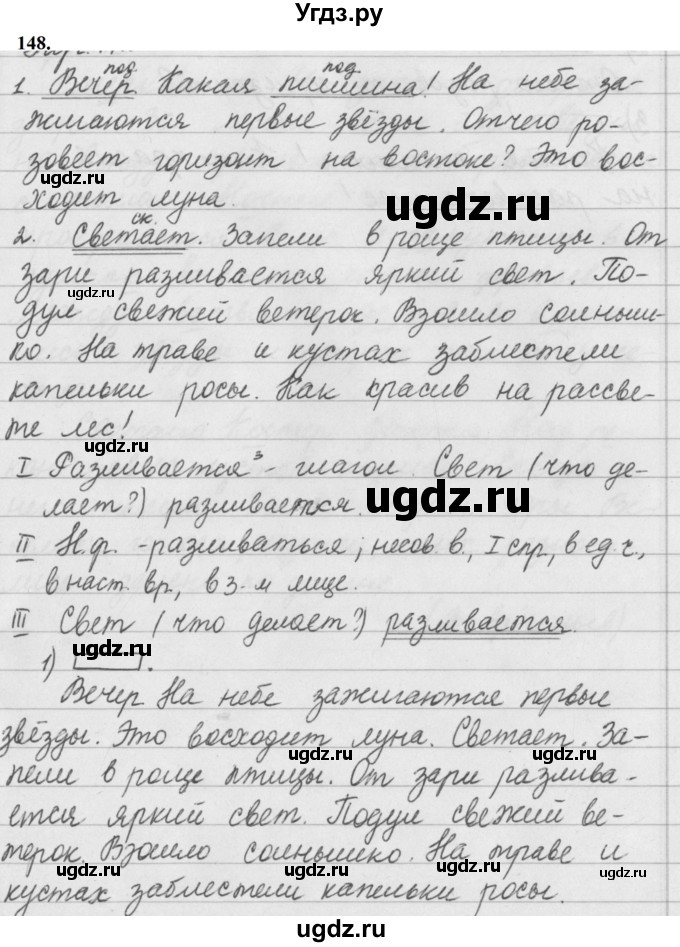 Угдз.ру
148.
под под
1. Вечер. Какая тишина! На небе за-
жигаются первые звёзды. Отчего ро-
зовеет горизонт на востоке? Это вос-
ugdz.ru
ходит луна.
ugdz.ru
ск.
2. Светает. Запели в роще птицы. От
ugdz.ru
зари разливается яркий свет. По-
ugdz.ru
дул свежий ветерок. Взошло солныш-
ко. На траве и кустах заблестели
капельки росы. Как красив на рассве-
ugdz.ru
те лес!
I Разливается³ - глагол. Свет (что де-
ugdz.ru
лает?) разливается.
ugdz.ru
II Н.ф. - разливаться; несов. в., I спр., в ед. ч.,
в наст. вр., в 3-м лице.
ugdz.ru
III Свет (что делает?) разливается.
ugdz.ru
1) [ ].
Вечер. На небе зажигаются первые
звёзды. Это восходит луна. Светает. За-
ugdz.ru
пели в роще птицы. От зари разлива-
ется яркий свет. Подул свежий ве-
ugdz.ru
терок. Взошло солнышко. На траве и
ugdz.ru
кустах заблестели капельки росы.
ugdz.ru